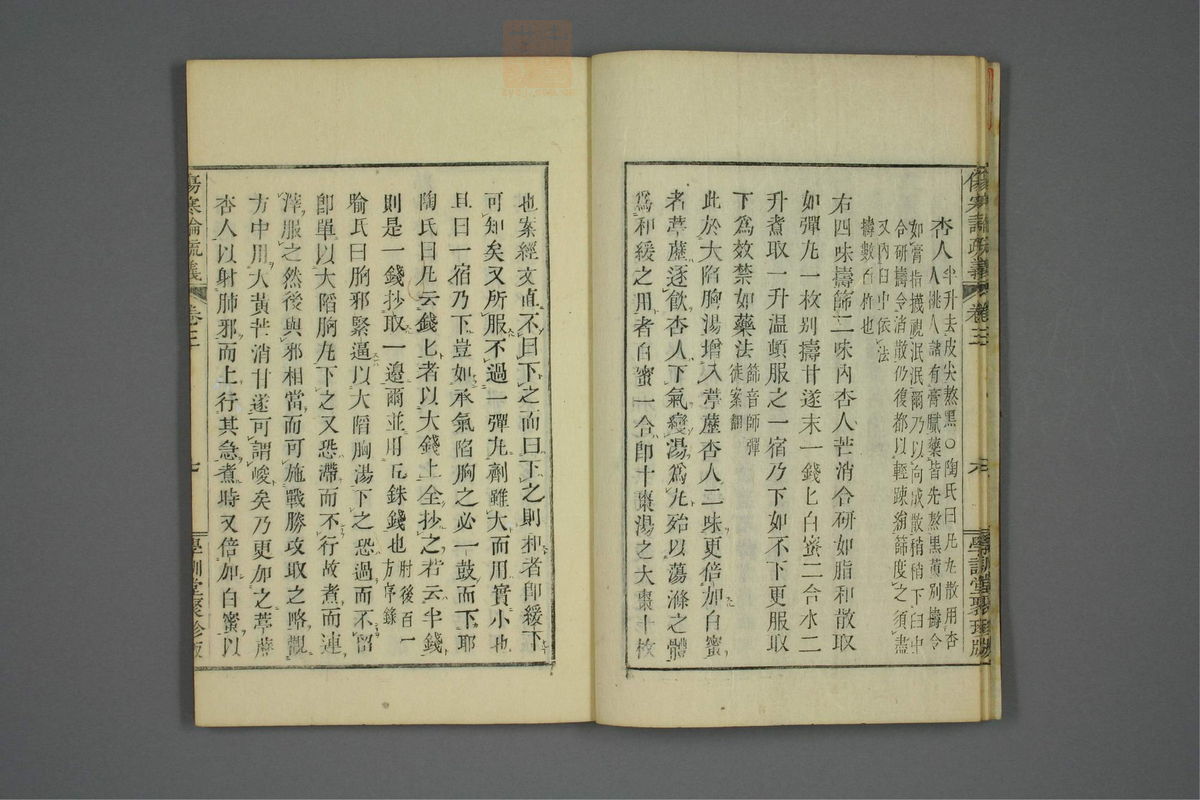 傷寒論疏義 卷三 六 學訓堂聚珍版
杏人半升去皮尖熬黑○陶氏曰凡丸散用杏
人桃人諸有膏膩藥皆先熬黑黃別擣令
如膏指㩢視泯泯爾乃以向成散稍稍下臼中
合研擣令消散仍復都以輕踈絹篩度之須盡
又內臼中依法
擣數百杵也
右四味擣篩二味內杏人芒消合研如脂和散取
如彈丸一枚別擣甘遂末一錢匕白蜜二合水二
升煮取一升溫頓服之一宿乃下如不下更服取
下爲效禁如藥法篩音師彈
徒案翻
此於大陷胸湯增入葶藶杏人二味更倍加白蜜
者葶藶逐飲杏人下氣變湯爲丸殆以蕩滌之體
爲和緩之用者白蜜一合卽十棗湯之大棗十枚
也案經文直不曰下之而曰下之則和者卽緩下
可知矣又所服不過一彈丸劑雖大而用實小也
且曰一宿乃下豈如承氣陷胸之必一鼓而下耶
陶氏曰凡云錢匕者以大錢上全抄之若云半錢
則是一錢抄取一邊爾並用五銖錢也肘後百一
方序錄
喻氏曰胸邪緊逼以大陷胸湯下之恐過而不留
卽單以大陷胸丸下之又恐滯而不行故煮而連
滓服之然後與邪相當而可施戰勝攻取之略觀
方中用大黃芒消甘遂可謂峻矣乃更加之葶藶
杏人以射肺邪而上行其急煮時又倍加白蜜以
傷寒論疏義 卷三 七 學訓堂聚珍版